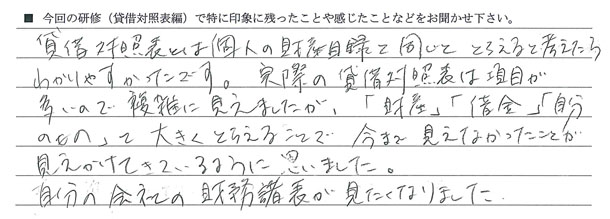 ■ 今回の研修（貸借対照表編）で特に印象に残ったことや感じたことなどをお聞かせ下さい。
貸借対照表とは個人の財産目録と同じと とらえると考えたら
わかりやすかったです。実際の貸借対照表は項目が
多いので複雑に見えましたが、「財産」「借金」「自分
のもの」って大きくとらえることで 今まで見えなかったことが
見えかけてきているように思いました。
自分の会社の財務諸表が見たくなりました